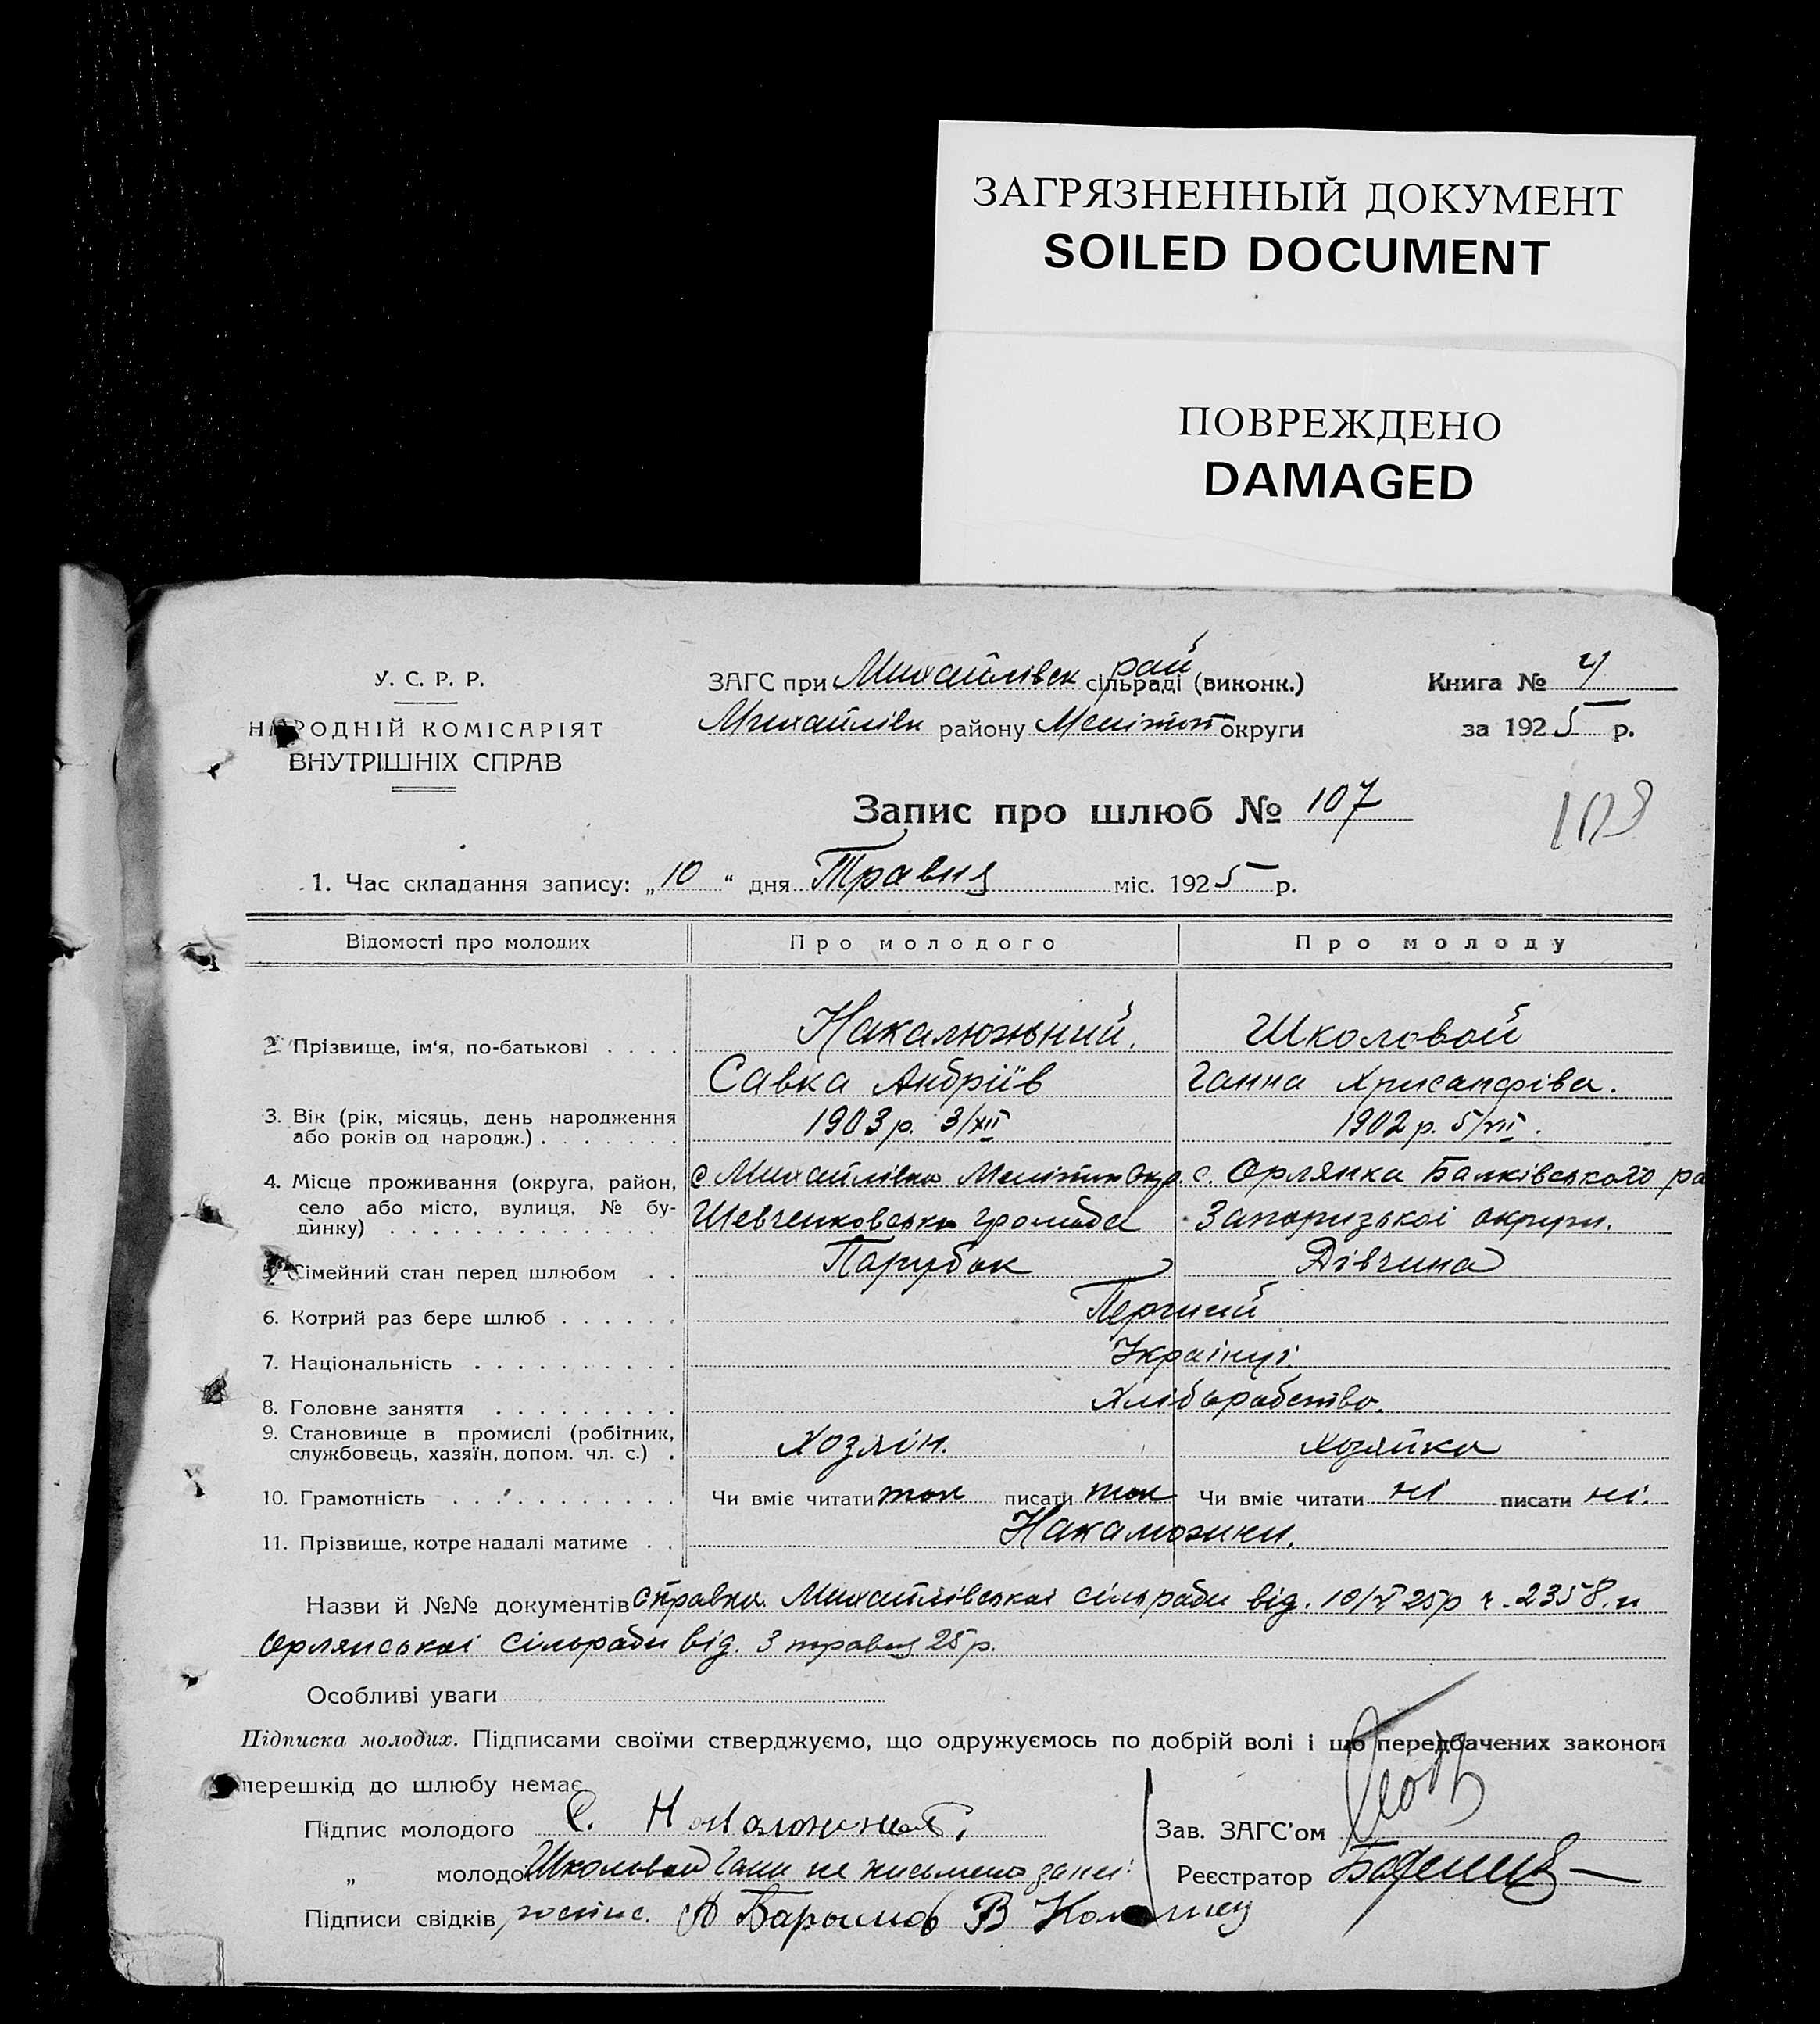 ЗАГРЯЗНЕННЫЙ ДОКУМЕНТ
SOILED DOCUMENT
ПОВРЕЖДЕНО
DAMAGED
У. С. Р. Р.
НАРОДНІЙ КОМІСАРІЯТ
ВНУТРІШНІХ СПРАВ
ЗАГС при Михайлівск рай сільраді (виконк.)
Михайлівк району Меліпот округи
Книга №
за 1925 р.
Запис про шлюб № 107
103
1. Час складання запису: „10“ дня Травня міс. 1925 р.
Відомості про молодих Про молодого Про молоду
2. Прізвище, ім'я, по-батькові . . . . Накалюжьний. Школовой
Савка Андріїв Ганна Хрисанфіва.
3. Вік (рік, місяць, день народження 1903 р. 3/XII 1902 р. 5/VII.
або років од народж.) . . . . . . .
4. Місце проживання (округа, район, с Михайлівка Меліпот Окр. с. Орлянка Балківського ра
село або місто, вулиця, № бу- Шевченковська громада Запоризькоі округи.
динку) . . . . . . . . . . . . . .
5. Сімейний стан перед шлюбом . . Парубок Дівчина
6. Котрий раз бере шлюб . . . . . . Перший
7. Національність . . . . . . . . . . Украінці.
8. Головне заняття . . . . . . . . . Хліборобство.
9. Становище в промислі (робітник, Хозяін. Хозяйка
службовець, хазяїн, допом. чл. с.) .
10. Грамотність . . . . . . . . . . . Чи вміє читати так писати так Чи вміє читати ні писати ні.
11. Прізвище, котре надалі матиме . . Накалюжни.
Назви й №№ документів Справка Михайлівськоі сільради від. 10/V 25р ч. 2358. и
Орлянськоі сільради від. 3 травня 25 р.
Особливі уваги
Підписка молодих. Підписами своїми стверджуємо, що одружуємось по добрій волі і що передбачених законом
перешкід до шлюбу немає.
Підпис молодого С. Зав. ЗАГС'ом
„ молодої Школовой Ганн не письмена Реєстратор
Підписи свідків А В